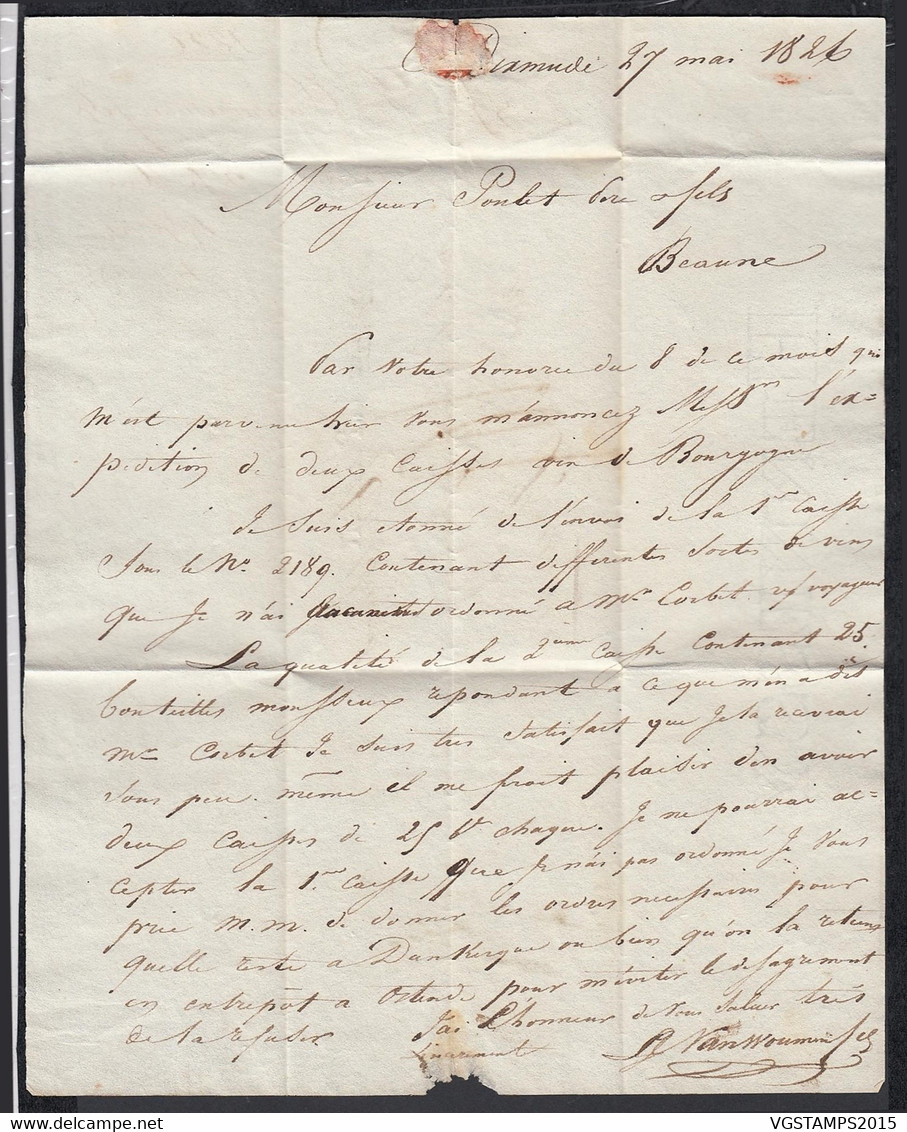 Dixmude 27 mai 1826
Monsieur Poulet Pere & fils
Beaune
Par votre honorée du 8 de ce mois qui
m'est parvenu hier vous m'annoncez Mess.rs l'ex=
pedition de deux caisses vin de Bourgogne
Je suis etonné de l'envoi de la 1re caisse
sous le No. 2189. Contenant differentes sortes de vins
que Je n'ai ordonné a Mr Corbet v/ voyageur
La qualité de la 2eme Caisse Contenant 25.
bouteilles mousseux repondant a ce que m'en a dit
Mr Corbet Je suis tres satisfait que Je la recevrai
sous peu. même il me froit plaisir d'en avoir
deux caisses de 25 Blles chaque. Je ne pourrai ac=
cepter la 1re caisse que Je n'ai pas ordonné Je vous
prie M.M. de donner les ordres necessaires pour
quelle reste a Dunkerque ou bien qu'on la retiens
en entrepôt a Ostende pour m'eviter le desagrement
de la refuser. J'ai L'honneur de vous saluer très
sincerement
VGSTAMPS2015